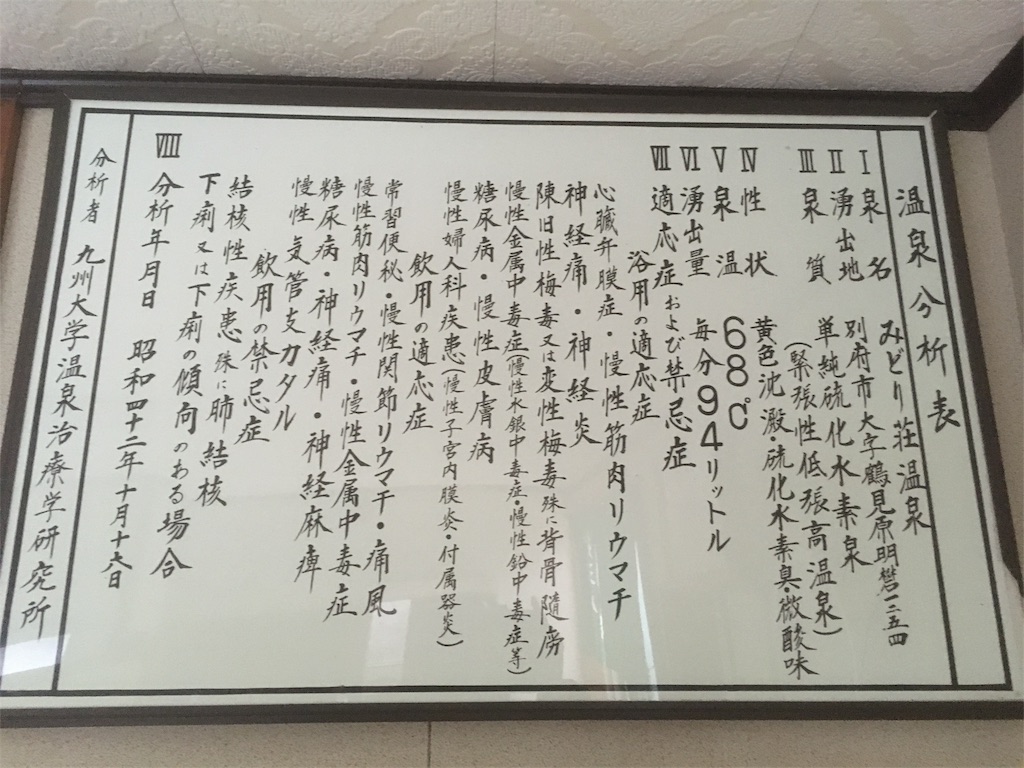 温泉分析表
Ⅰ 泉名 みどり荘温泉
Ⅱ 湧出地 別府市大字鶴見原明礬一二五四
Ⅲ 泉質 単純硫化水素泉
(緊張性低張高温泉)
Ⅳ 性状 黄色沈澱・硫化水素臭・微酸味
Ⅴ 泉温 68℃
Ⅵ 湧出量 毎分94リットル
Ⅶ 適応症および禁忌症
浴用の適応症
心臓弁膜症・慢性筋肉リウマチ
神経痛・神経炎
陳旧性梅毒又は変性梅毒殊に背骨髄癆
慢性金属中毒症(慢性水銀中毒症・慢性鉛中毒症等)
糖尿病・慢性皮膚病
慢性婦人科疾患(慢性子宮内膜炎・付属器炎)
飲用の適応症
常習便秘・慢性関節リウマチ・痛風
慢性筋肉リウマチ・慢性金属中毒症
糖尿病・神経痛・神経麻痺
慢性気管支カタル
飲用の禁忌症
結核性疾患殊に肺結核
下痢又は下痢の傾向のある場合
Ⅷ 分析年月日 昭和四十二年十月十六日
分析者 九州大学温泉治療学研究所